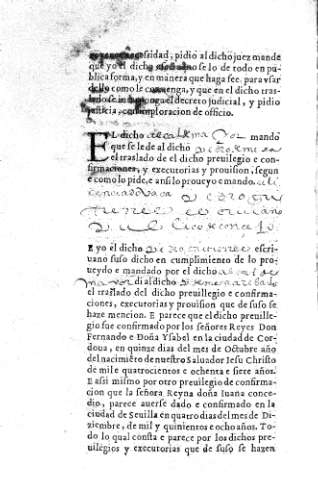 necessidad, pidio al dicho juez mande
que yo el dicho se lo de todo en pu-
blica forma, y en manera que haga fee. para vsar
dello como le conuenga, y que en el dicho tras-
lado se interponga el decreto judicial, y pidio
justicia, con imploracion de officio.
EL dicho alcalde mayor mando
que se le de al dicho
el traslado de el dicho preuilegio e con-
firmaciones, y executorias y prouision, segun
e como lo pide, e ansi lo proueyo e mando.
E yo el dicho escri-
uano suso dicho en cumplimiento de lo pro-
ueydo e mandado por el dicho alcalde
mayor di al dicho
el traslado del dicho preuillegio e confirma-
ciones, executorias y prouision que de suso se
haze mencion. E parece que el dicho preuille-
gio fue confirmado por los señores Reyes Don
Fernando e Doña Ysabel en la ciudad de Cor-
doua, en quinze dias del mes de Octubre año
del nacimiẽto de nuestro Saluador Jesu Christo
de mil e quatrocientos e ochenta e siete años.
E assi mismo por otro preuilegio de confirma-
cion que la señora Reyna doña Iuana conce-
dio, parece auerse dado e confirmado en la
ciudad de Seuilla en quatro dias del mes de Di-
ziembre, de mil y quinientos e ocho años. To-
do lo qual consta e parece por los dichos pre-
uilegios y executorias que de suso se hazen